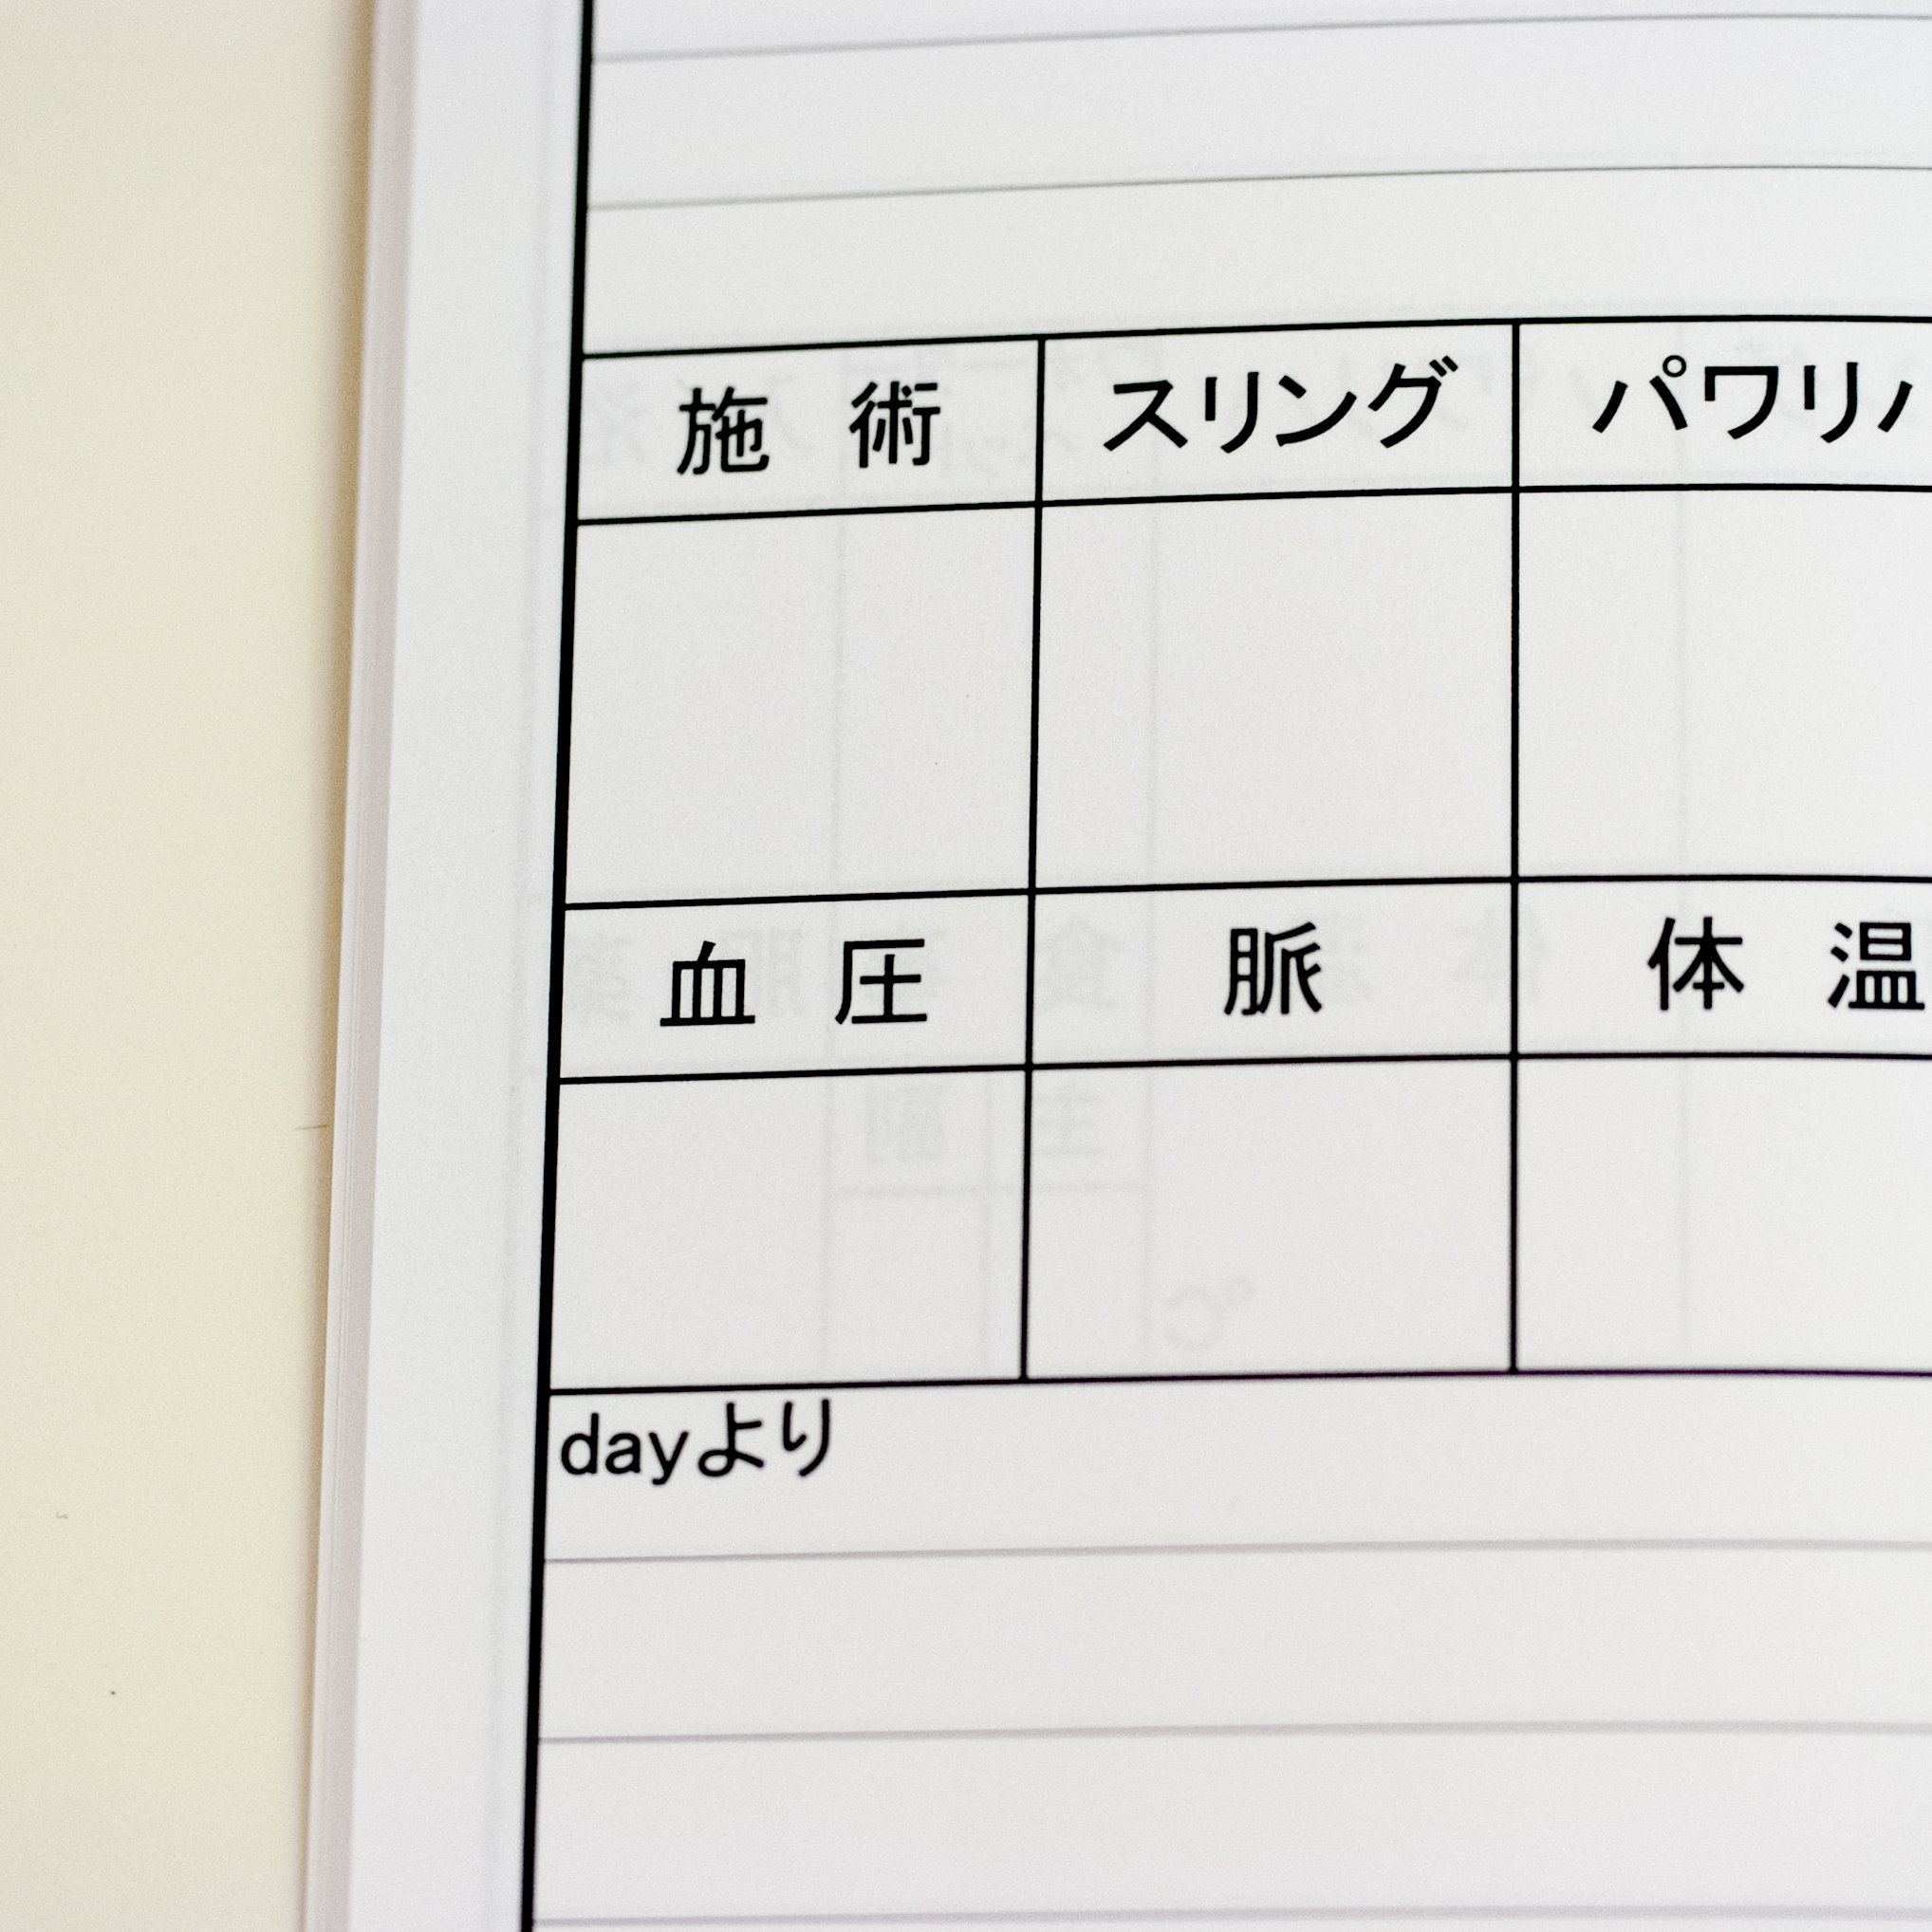 施 術 スリング パワリハ
血 圧 脈 体 温
dayより